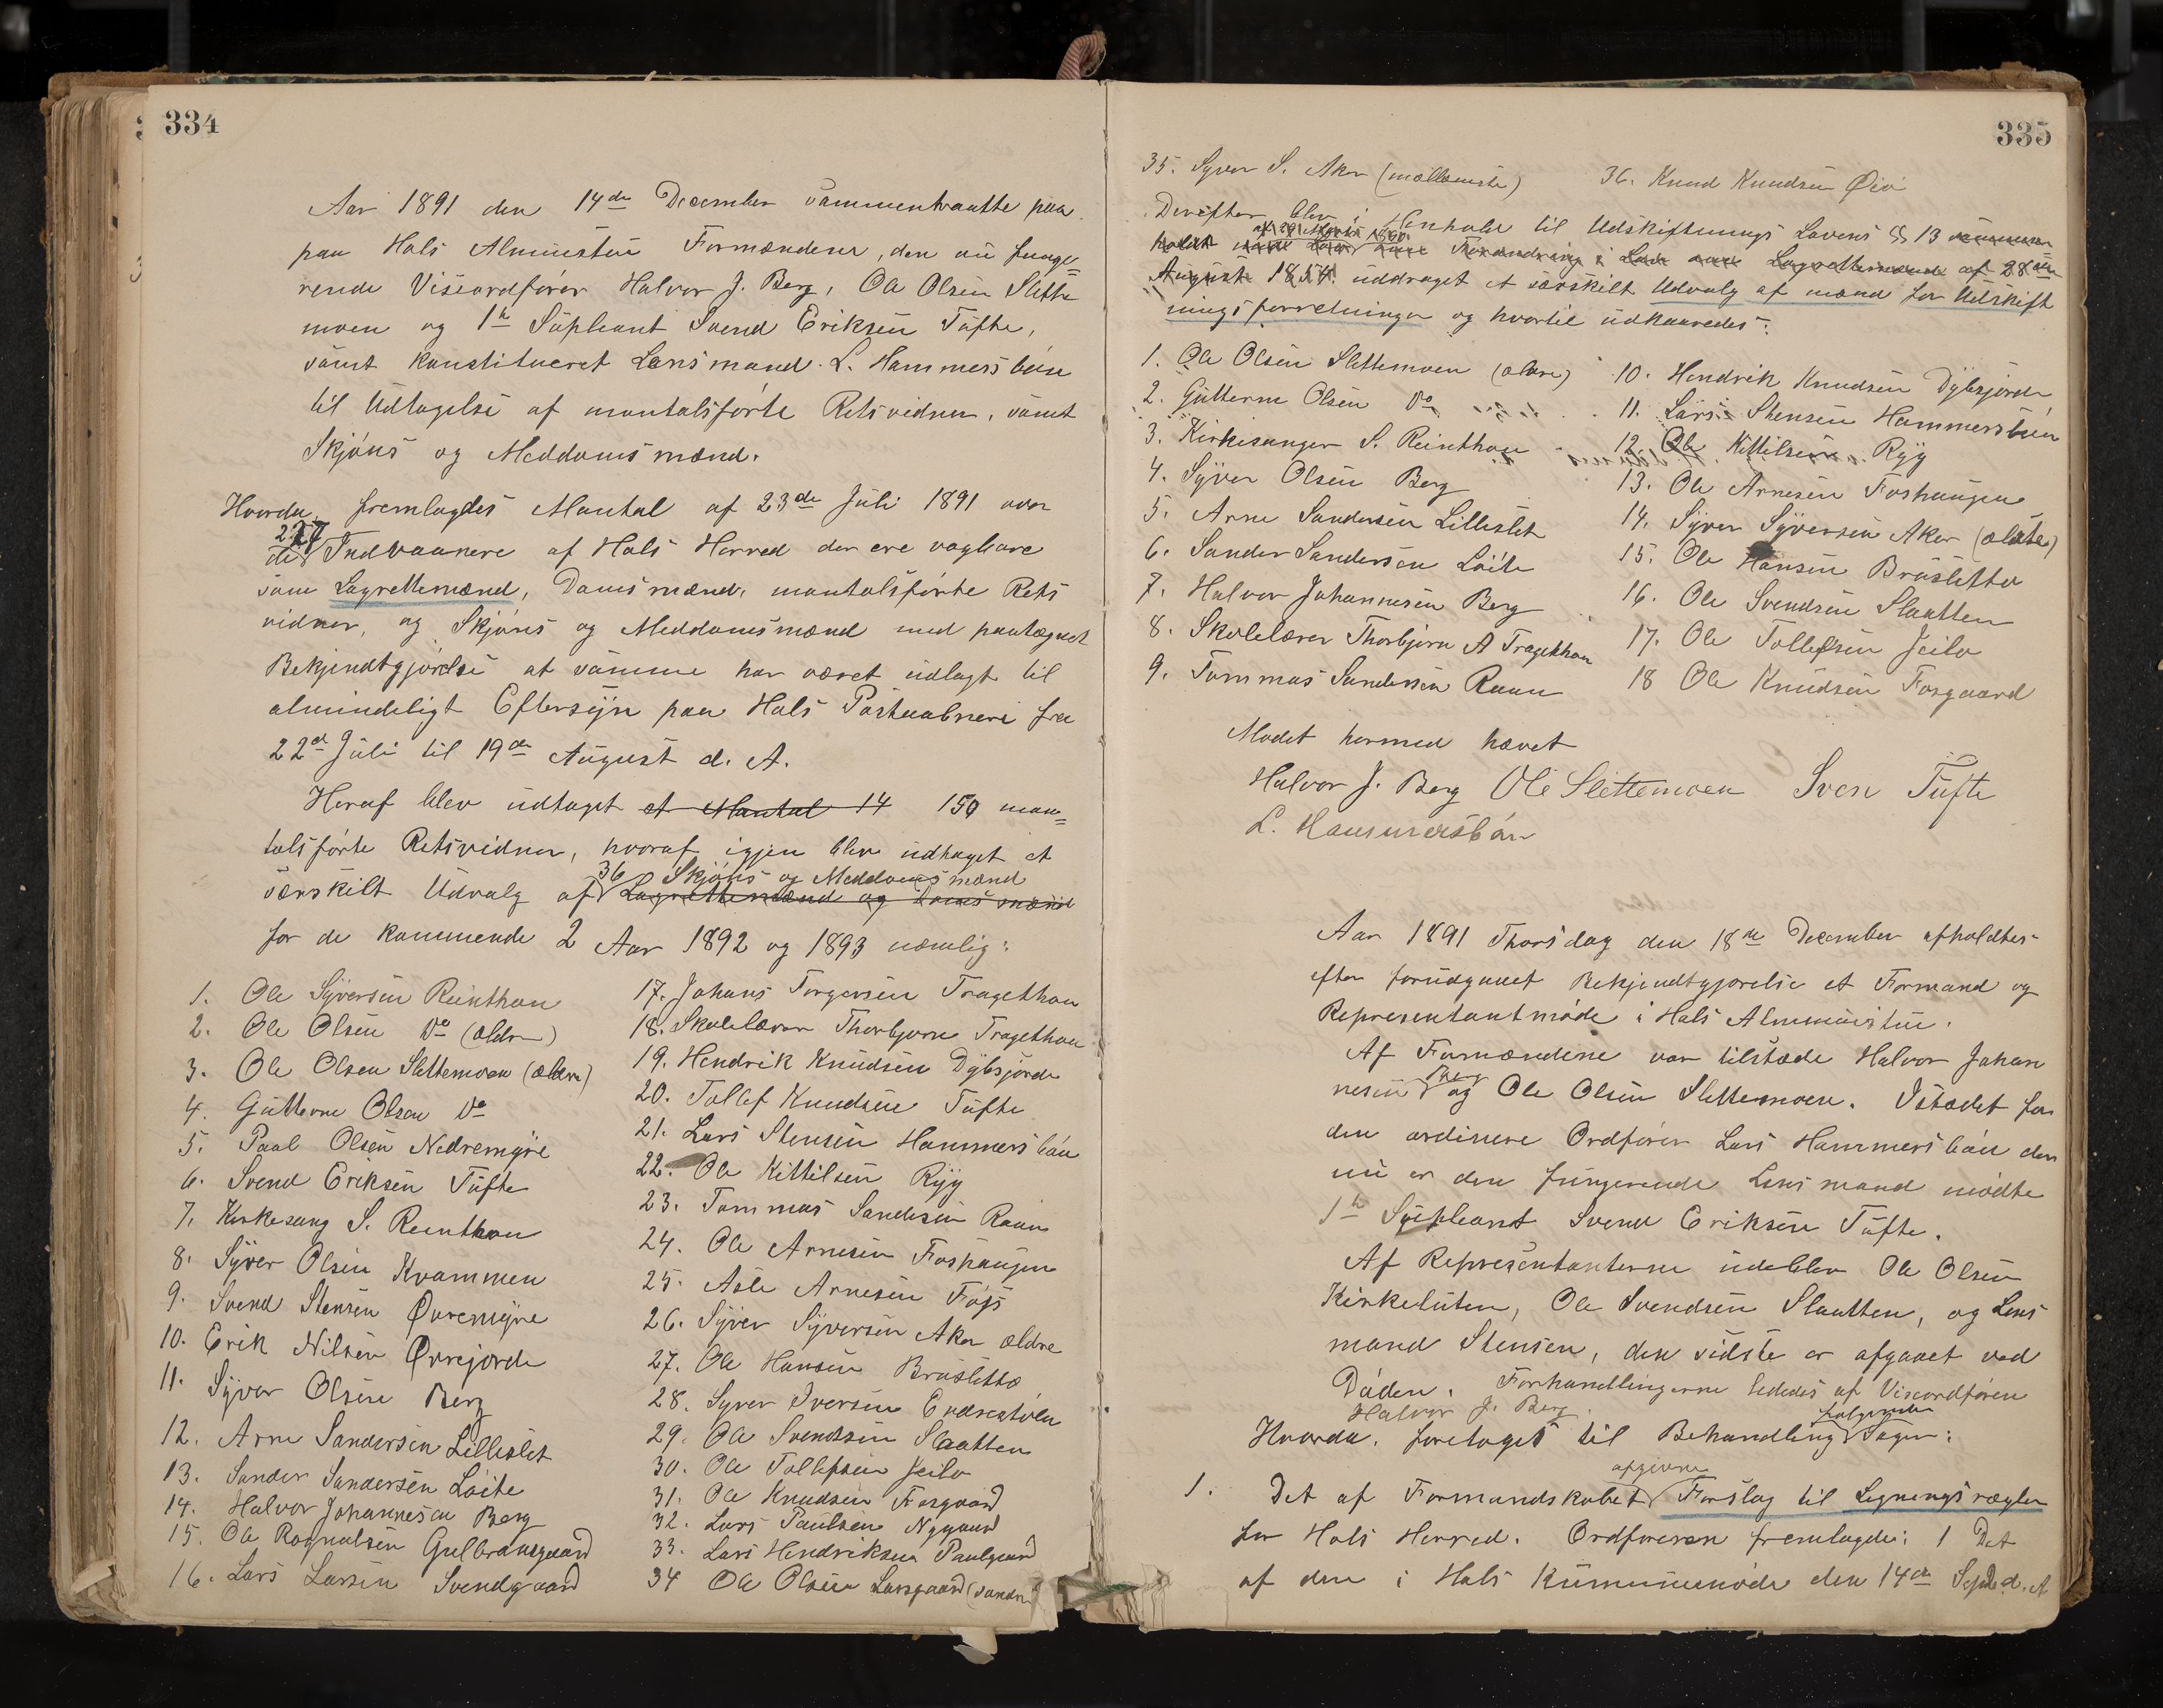 334
Aar 1891 den 14de December sammentraatte paa
paa Hols Alminstue Formændene, den nu funge=
rende Viseordfører Halvor J. Berg, Ole Olsen Slette
moen og 1te Supleant Svend Eriksen Tufte,
samt konstitueret Lensmand L. Hammersbøen
til Udtagelse af mantalsførte Retsvidner, samt
Skjøns og Meddomsmænd.
Hvorda fremlagdes Mantal af 23de Juli 1891 over
227
de Indvaanere af Hols Herred der ere vagbare
som Lagrettemænd, Domsmænd, mantalsførte Rets
vidner, og Skjøns og Meddomsmænd med paategnet
Bekjendtgjørelse at samme har været udlagt til
almindeligt Eftersyn paa Hols Postaabneri fra
22de Juli til 19de August d. A.
Heraf blev udtaget et Mantal 14 150 man=
talsførte Retsvidner, hvoraf igjen blev udtaget et
36 Skjøns og Meddomsmænd
særskilt Udvalg af Lagrettemænd og Domsmænd
for de kommende 2 Aar 1892 og 1893 nemlig:
1. Ole Syversen Reinthon
2. Ole Olsen Do (ældre)
3. Ole Olsen Slettemoen (ældre)
4. Gutterm Olsen Do
5. Paal Olsen Nedremyre
6. Svend Eriksen Tufte
7. Kirkesang S. Reinthon
8. Syver Olsen Kvammen
9. Svend Stensen Øvremyre
10. Erik Nilsen Øvrejorde
11. Syver Olsen Berg
12. Arne Sandersen Lilleslet
13. Sander Sandersen Løite
14. Halvor Johannesen Berg
15. Ole Rognalsen Gulbransgaard
16. Lars Larsen Svendgaard
17. Johans Torgersen Tragethon
18. Skolelærer Thorbjørn Tragethon
19. Hendrik Knudsen Dybsjorde
20. Tollef Knudsen Tufte
21. Lars Stensen Hammersbøen
22. Ole Kittilsen Ryg
23. Tommas Sandersen Raaen
24. Ole Arnesen Foshaugen
25. Asle Arnesen Foss
26. Syver Syversen Aker ældre
27. Ole Hansen Bruslette
28. Syver Iversen Endrestølen
29. Ole Svendsen Slaatten
30. Ole Tollefsen Jeilo
31. Ole Knudsen Forgaard
32. Lars Paulsen Nygaard
33. Lars Hendriksen Paulgaard
34 Ole Olsen Larsgaard (søndre)
335
35. Syver S. Aker (mellemste) 36. Knud Knudsen Øio
Derefter blev i Henhold til Udskiftnings Lovens § 13
August 1854 uddraget et særskilt Udvalg af mænd for Udskift
ningsforretninger og hvortil udkaaredes:
1. Ole Olsen Slettemoen (ældre)
2. Gutterm Olsen Do
3. Kirkesanger S. Reinthon
4. Syver Olsen Berg
5. Arne Sandersen Lilleslet
6. Sander Sandersen Løite
7. Halvor Johannesen Berg
8. Skolelærer Thorbjørn A Tragethon
9. Tommas Sandersen Raaen
10. Hendrik Knudsen Dybsjorde
11. Lars Stensen Hammersbøen
12. Ole Kittilsen Ryg
13. Ole Arnesen Foshaugen
14. Syver Syversen Aker (ældste)
15. Ole Hansen Bruslette
16. Ole Svendsen Slaatten
17. Ole Tollefsen Jeilo
18 Ole Knudsen Forgaard
Mødet hermed hævet
Halvor J. Berg Ole Slettemoen Sven Tufte
L. Hammersbøen
Aar 1891 Thorsdag den 18de December afholdtes
efter forudgaaet Bekjendtgjørelse et Formand og
Representantmøde i Hols Almuestue.
Af Formændene var tilstæde Halvor Johan
Berg
nesen og Ole Olsen Slettemoen. Istædet for
den ordinere Ordfører Lars Hammersbøen der
nu er den fungerende Lensmand mødte
1te Supleant Svend Eriksen Tufte.
Af Representanterne udeblev Ole Olsen
Kirkeluten, Ole Svendsen Slaatten, og Lens
mand Stensen, den sidste er afgaaet ved
Døden. Forhandlingerne lededes af Viseordføren
Halvor J. Berg.
følgende
Hvorda foretoges til Behandling Sager:
afgivne
1. Det af Formandskabet Forslag til Ligningsregler
for Hols Herred. Ordføreren fremlagde: 1 Det
af den i Hols Kummunemøde den 14de Septb. d. A